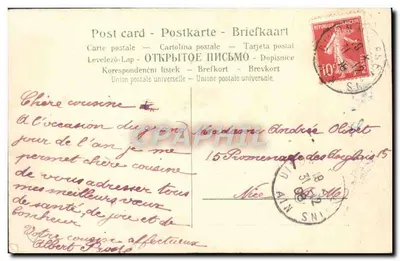 Post card - Postkarte - Briefkaart
Carte postale - Cartolina postale - Tarjeta postal
Levelező-Lap - ОТКРЫТОЕ ПИСЬМО - Dopisnice
Korespondenční lístek - Brefkort - Brevkort
Union postale universelle. - Unione postale universale.
10
Chère cousine
A l'occasion du jour
jour de l'an je me
permet chère cousine
de vous adresser tous
mes meilleurs vœux
de santé, de joie et de
bonheur
Votre cousin affectueux
Albert
Madame Andrée
15 Promenade des Anglais 15
Nice
AIN
CPArama.com